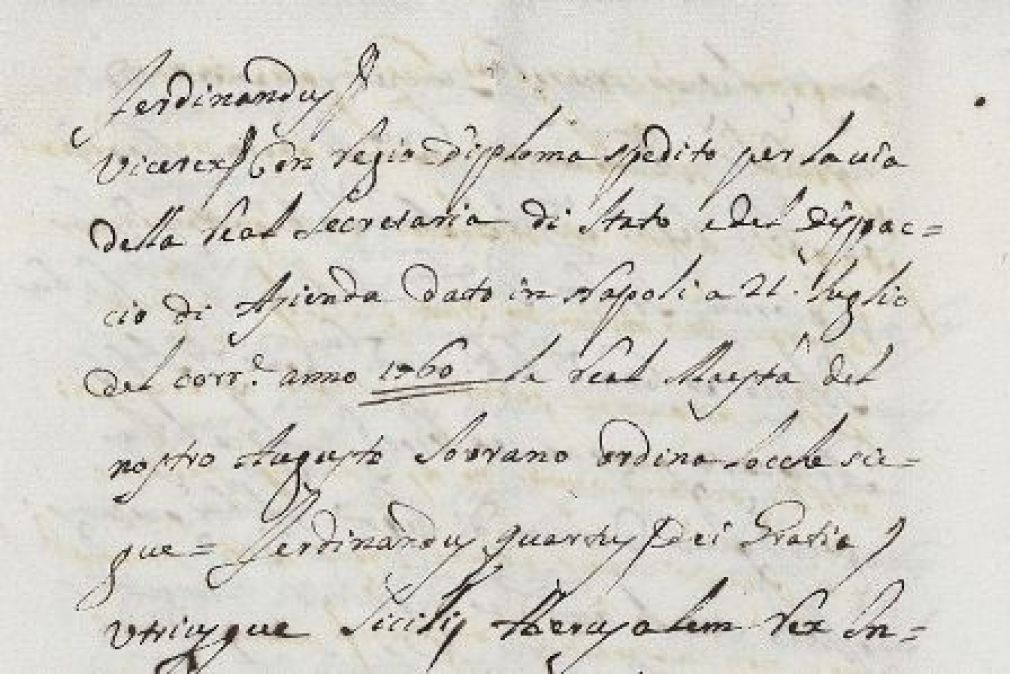 Ferdinandus
Vicerex Con Regio Diploma spedito per la via
della Real Secretaria di Stato e del dispac=
cio di Azienda dato in Napoli a 21. luglio
del corr.e anno 1760 la Real Maestà del
nostro Augusto Sovrano ordina locche sie=
gue= Ferdinandus quartus Dei Gratia
Utriusque Sicilię Hierusalem Rex In=